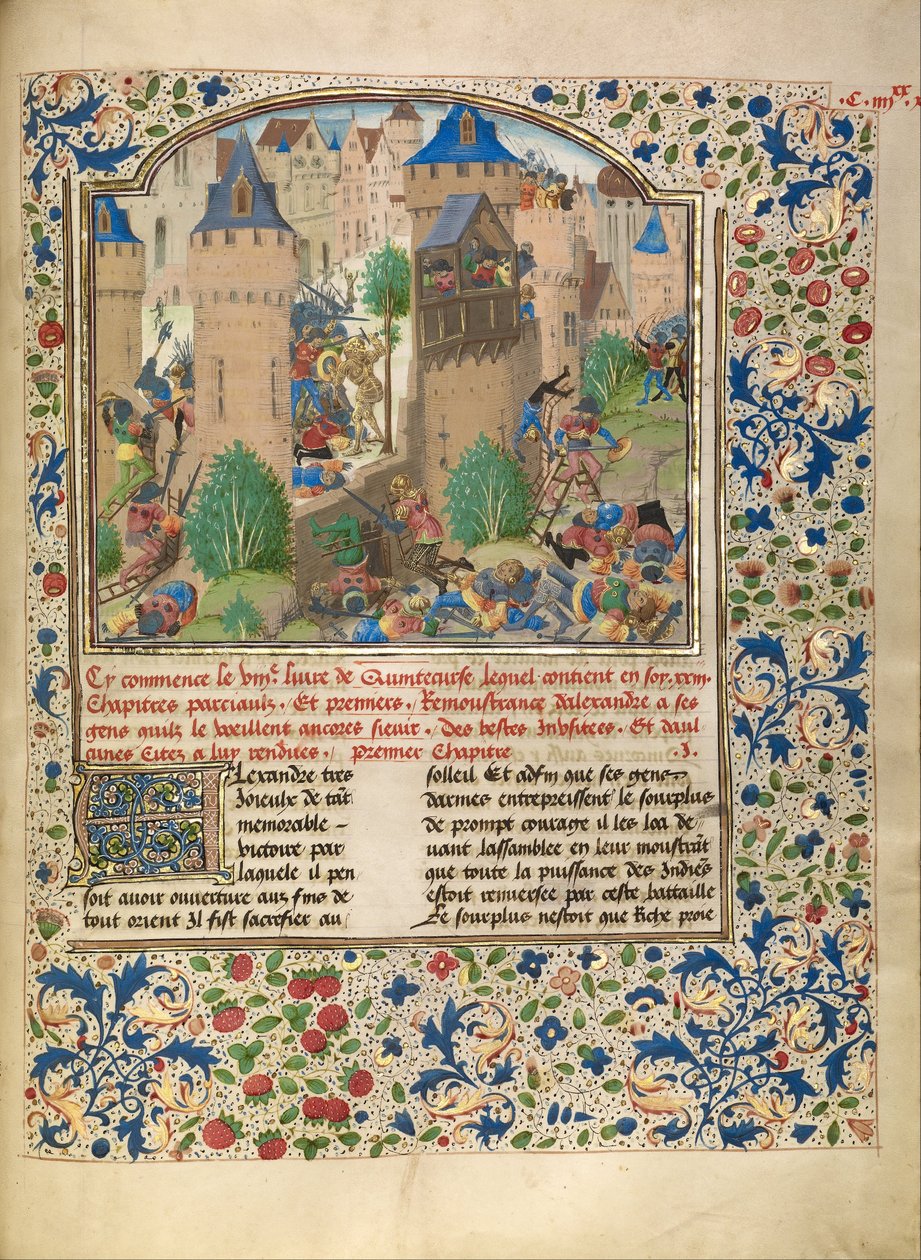 .C. iiij xx x
Cy commence le viij.e livre de Quintecurse lequel contient en soy .xxiij.
Chapitres parciaulx. Et premiers. Remoustrance dalexandre a ses
gens quilz le veillent ancores sievir. Des bestes Inusitees. Et daul
cunes Citez a luy rendues. premier Chapitre .I.
Alexandre tres
Joieulx de tāt
memorable -
victoire par
laquele il pen
soit avoir ouverture aux fins de
tout orient Il fist sacrefier au
solleil Et adfin que ses gens
darmes entrepreissent le sourplus
de prompt courage il les loa de
uant lassamblee en leur moustrāt
que toute la puissance des Indiēs
estoit renversee par ceste battaille
Le sourplus nestoit que Riche proie